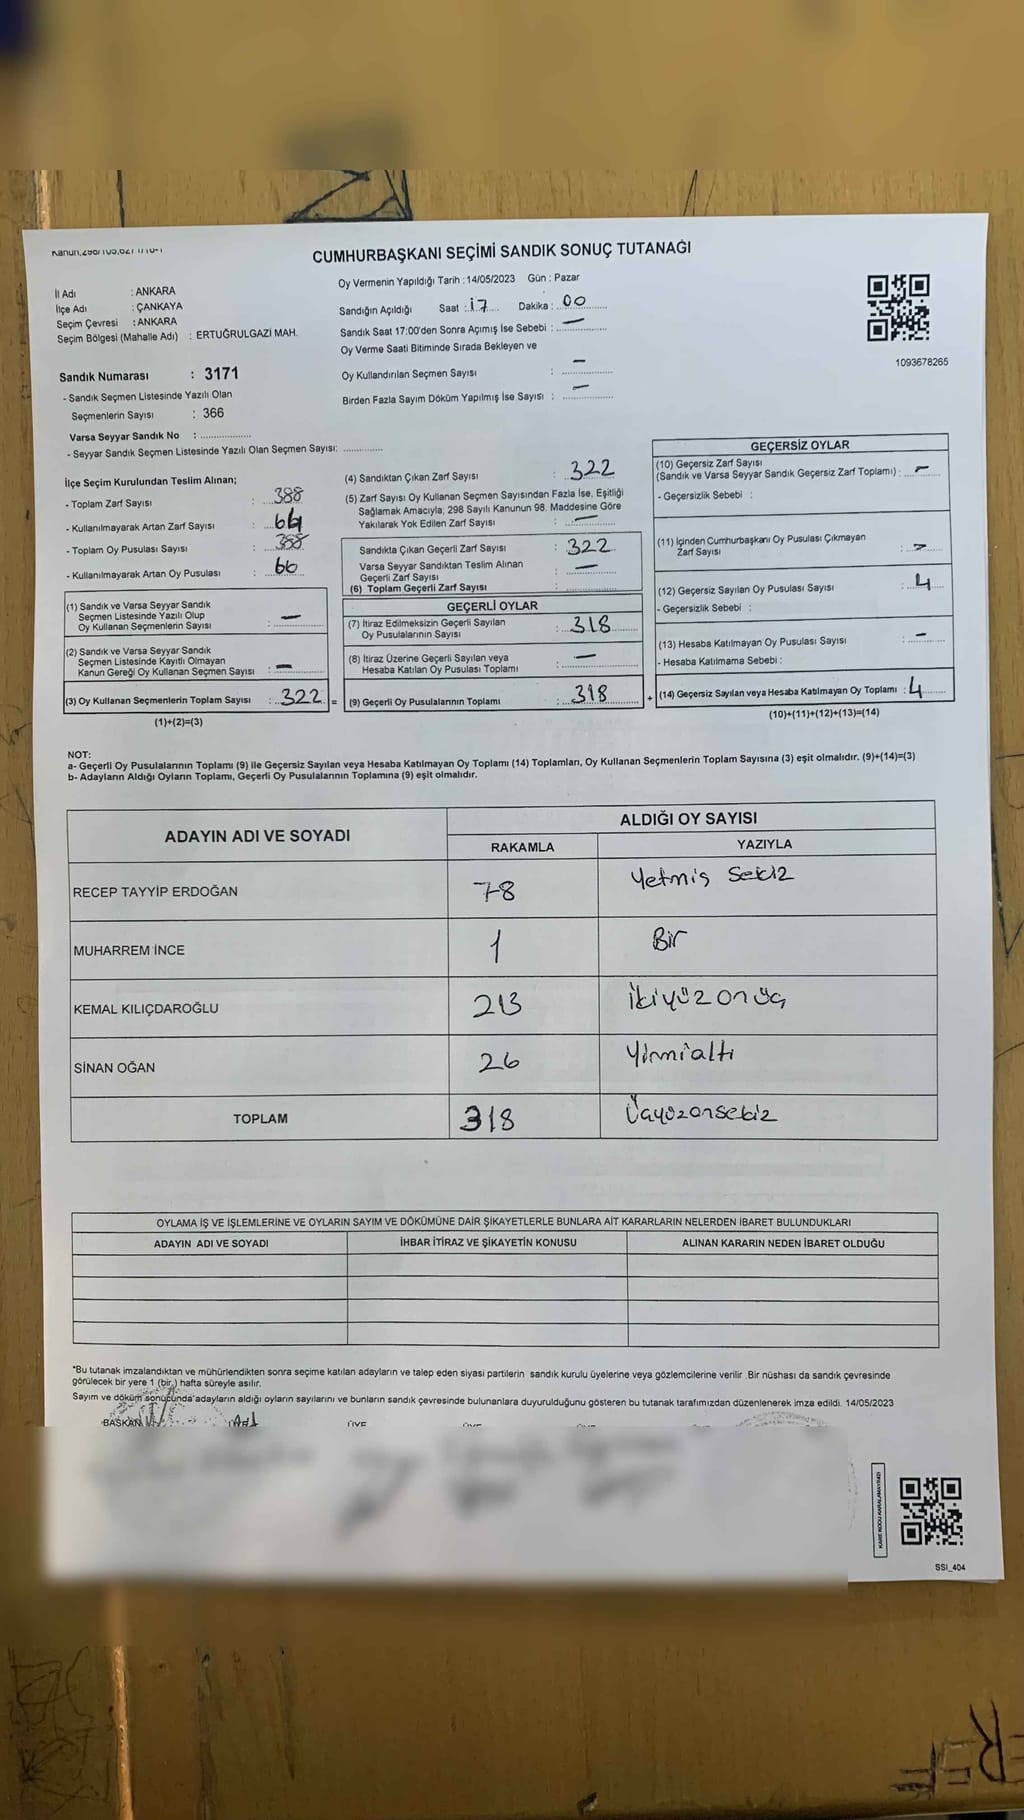 CUMHURBAŞKANI SEÇİMİ SANDIK SONUÇ TUTANAĞI
İl Adı : ANKARA
İlçe Adı : ÇANKAYA
Seçim Çevresi : ANKARA
Seçim Bölgesi (Mahalle Adı) : ERTUĞRULGAZİ MAH.
Oy Vermenin Yapıldığı Tarih : 14/05/2023 Gün : Pazar
Sandığın Açıldığı Saat : 17 Dakika : 00
Sandık Saat 17:00'den Sonra Açımış İse Sebebi : —
Oy Verme Saati Bitiminde Sırada Bekleyen ve
Oy Kullandırılan Seçmen Sayısı : —
Birden Fazla Sayım Döküm Yapılmış İse Sayısı : —
1093678265
Sandık Numarası : 3171
- Sandık Seçmen Listesinde Yazılı Olan
Seçmenlerin Sayısı : 366
Varsa Seyyar Sandık No :
- Seyyar Sandık Seçmen Listesinde Yazılı Olan Seçmen Sayısı:
İlçe Seçim Kurulundan Teslim Alınan;
- Toplam Zarf Sayısı : 388
- Kullanılmayarak Artan Zarf Sayısı :
- Toplam Oy Pusulası Sayısı : 388
- Kullanılmayarak Artan Oy Pusulası : 66
(1) Sandık ve Varsa Seyyar Sandık
Seçmen Listesinde Yazılı Olup
Oy Kullanan Seçmenlerin Sayısı : —
(2) Sandık ve Varsa Seyyar Sandık
Seçmen Listesinde Kayıtlı Olmayan
Kanun Gereği Oy Kullanan Seçmen Sayısı : —
(3) Oy Kullanan Seçmenlerin Toplam Sayısı : 322 =
(1)+(2)=(3)
(4) Sandıktan Çıkan Zarf Sayısı : 322
(5) Zarf Sayısı Oy Kullanan Seçmen Sayısından Fazla İse, Eşitliği
Sağlamak Amacıyla; 298 Sayılı Kanunun 98. Maddesine Göre
Yakılarak Yok Edilen Zarf Sayısı : —
Sandıkta Çıkan Geçerli Zarf Sayısı : 322
Varsa Seyyar Sandıktan Teslim Alınan
Geçerli Zarf Sayısı : —
(6) Toplam Geçerli Zarf Sayısı :
GEÇERLİ OYLAR
(7) İtiraz Edilmeksizin Geçerli Sayılan
Oy Pusulalarının Sayısı : 318
(8) İtiraz Üzerine Geçerli Sayılan veya
Hesaba Katılan Oy Pusulası Toplamı : —
(9) Geçerli Oy Pusulalarının Toplamı : 318 +
GEÇERSİZ OYLAR
(10) Geçersiz Zarf Sayısı
(Sandık ve Varsa Seyyar Sandık Geçersiz Zarf Toplamı) : —
- Geçersizlik Sebebi :
(11) İçinden Cumhurbaşkanı Oy Pusulası Çıkmayan
Zarf Sayısı : —
(12) Geçersiz Sayılan Oy Pusulası Sayısı : 4
- Geçersizlik Sebebi :
(13) Hesaba Katılmayan Oy Pusulası Sayısı : —
- Hesaba Katılmama Sebebi :
(14) Geçersiz Sayılan veya Hesaba Katılmayan Oy Toplamı : 4
(10)+(11)+(12)+(13)=(14)
NOT:
a- Geçerli Oy Pusulalarının Toplamı (9) ile Geçersiz Sayılan veya Hesaba Katılmayan Oy Toplamı (14) Toplamları, Oy Kullanan Seçmenlerin Toplam Sayısına (3) eşit olmalıdır. (9)+(14)=(3)
b- Adayların Aldığı Oyların Toplamı, Geçerli Oy Pusulalarının Toplamına (9) eşit olmalıdır.
ADAYIN ADI VE SOYADI
ALDIĞI OY SAYISI
RAKAMLA YAZIYLA
RECEP TAYYİP ERDOĞAN 78 Yetmiş Sekiz
MUHARREM İNCE 1 Bir
KEMAL KILIÇDAROĞLU 213 İkiyüzonüç
SİNAN OĞAN 26 Yirmialtı
TOPLAM 318 Üçyüzonsekiz
OYLAMA İŞ VE İŞLEMLERİNE VE OYLARIN SAYIM VE DÖKÜMÜNE DAİR ŞİKAYETLERLE BUNLARA AİT KARARLARIN NELERDEN İBARET BULUNDUKLARI
ADAYIN ADI VE SOYADI İHBAR İTİRAZ VE ŞİKAYETİN KONUSU ALINAN KARARIN NEDEN İBARET OLDUĞU
*Bu tutanak imzalandıktan ve mühürlendikten sonra seçime katılan adayların ve talep eden siyasi partilerin sandık kurulu üyelerine veya gözlemcilerine verilir. Bir nüshası da sandık çevresinde
görülecek bir yere 1 (bir) hafta süreyle asılır.
Sayım ve döküm sonucunda adayların aldığı oyların sayılarını ve bunların sandık çevresinde bulunanlara duyurulduğunu gösteren bu tutanak tarafımızdan düzenlenerek imza edildi. 14/05/2023
BAŞKAN ÜYE ÜYE ÜYE
SSI_404